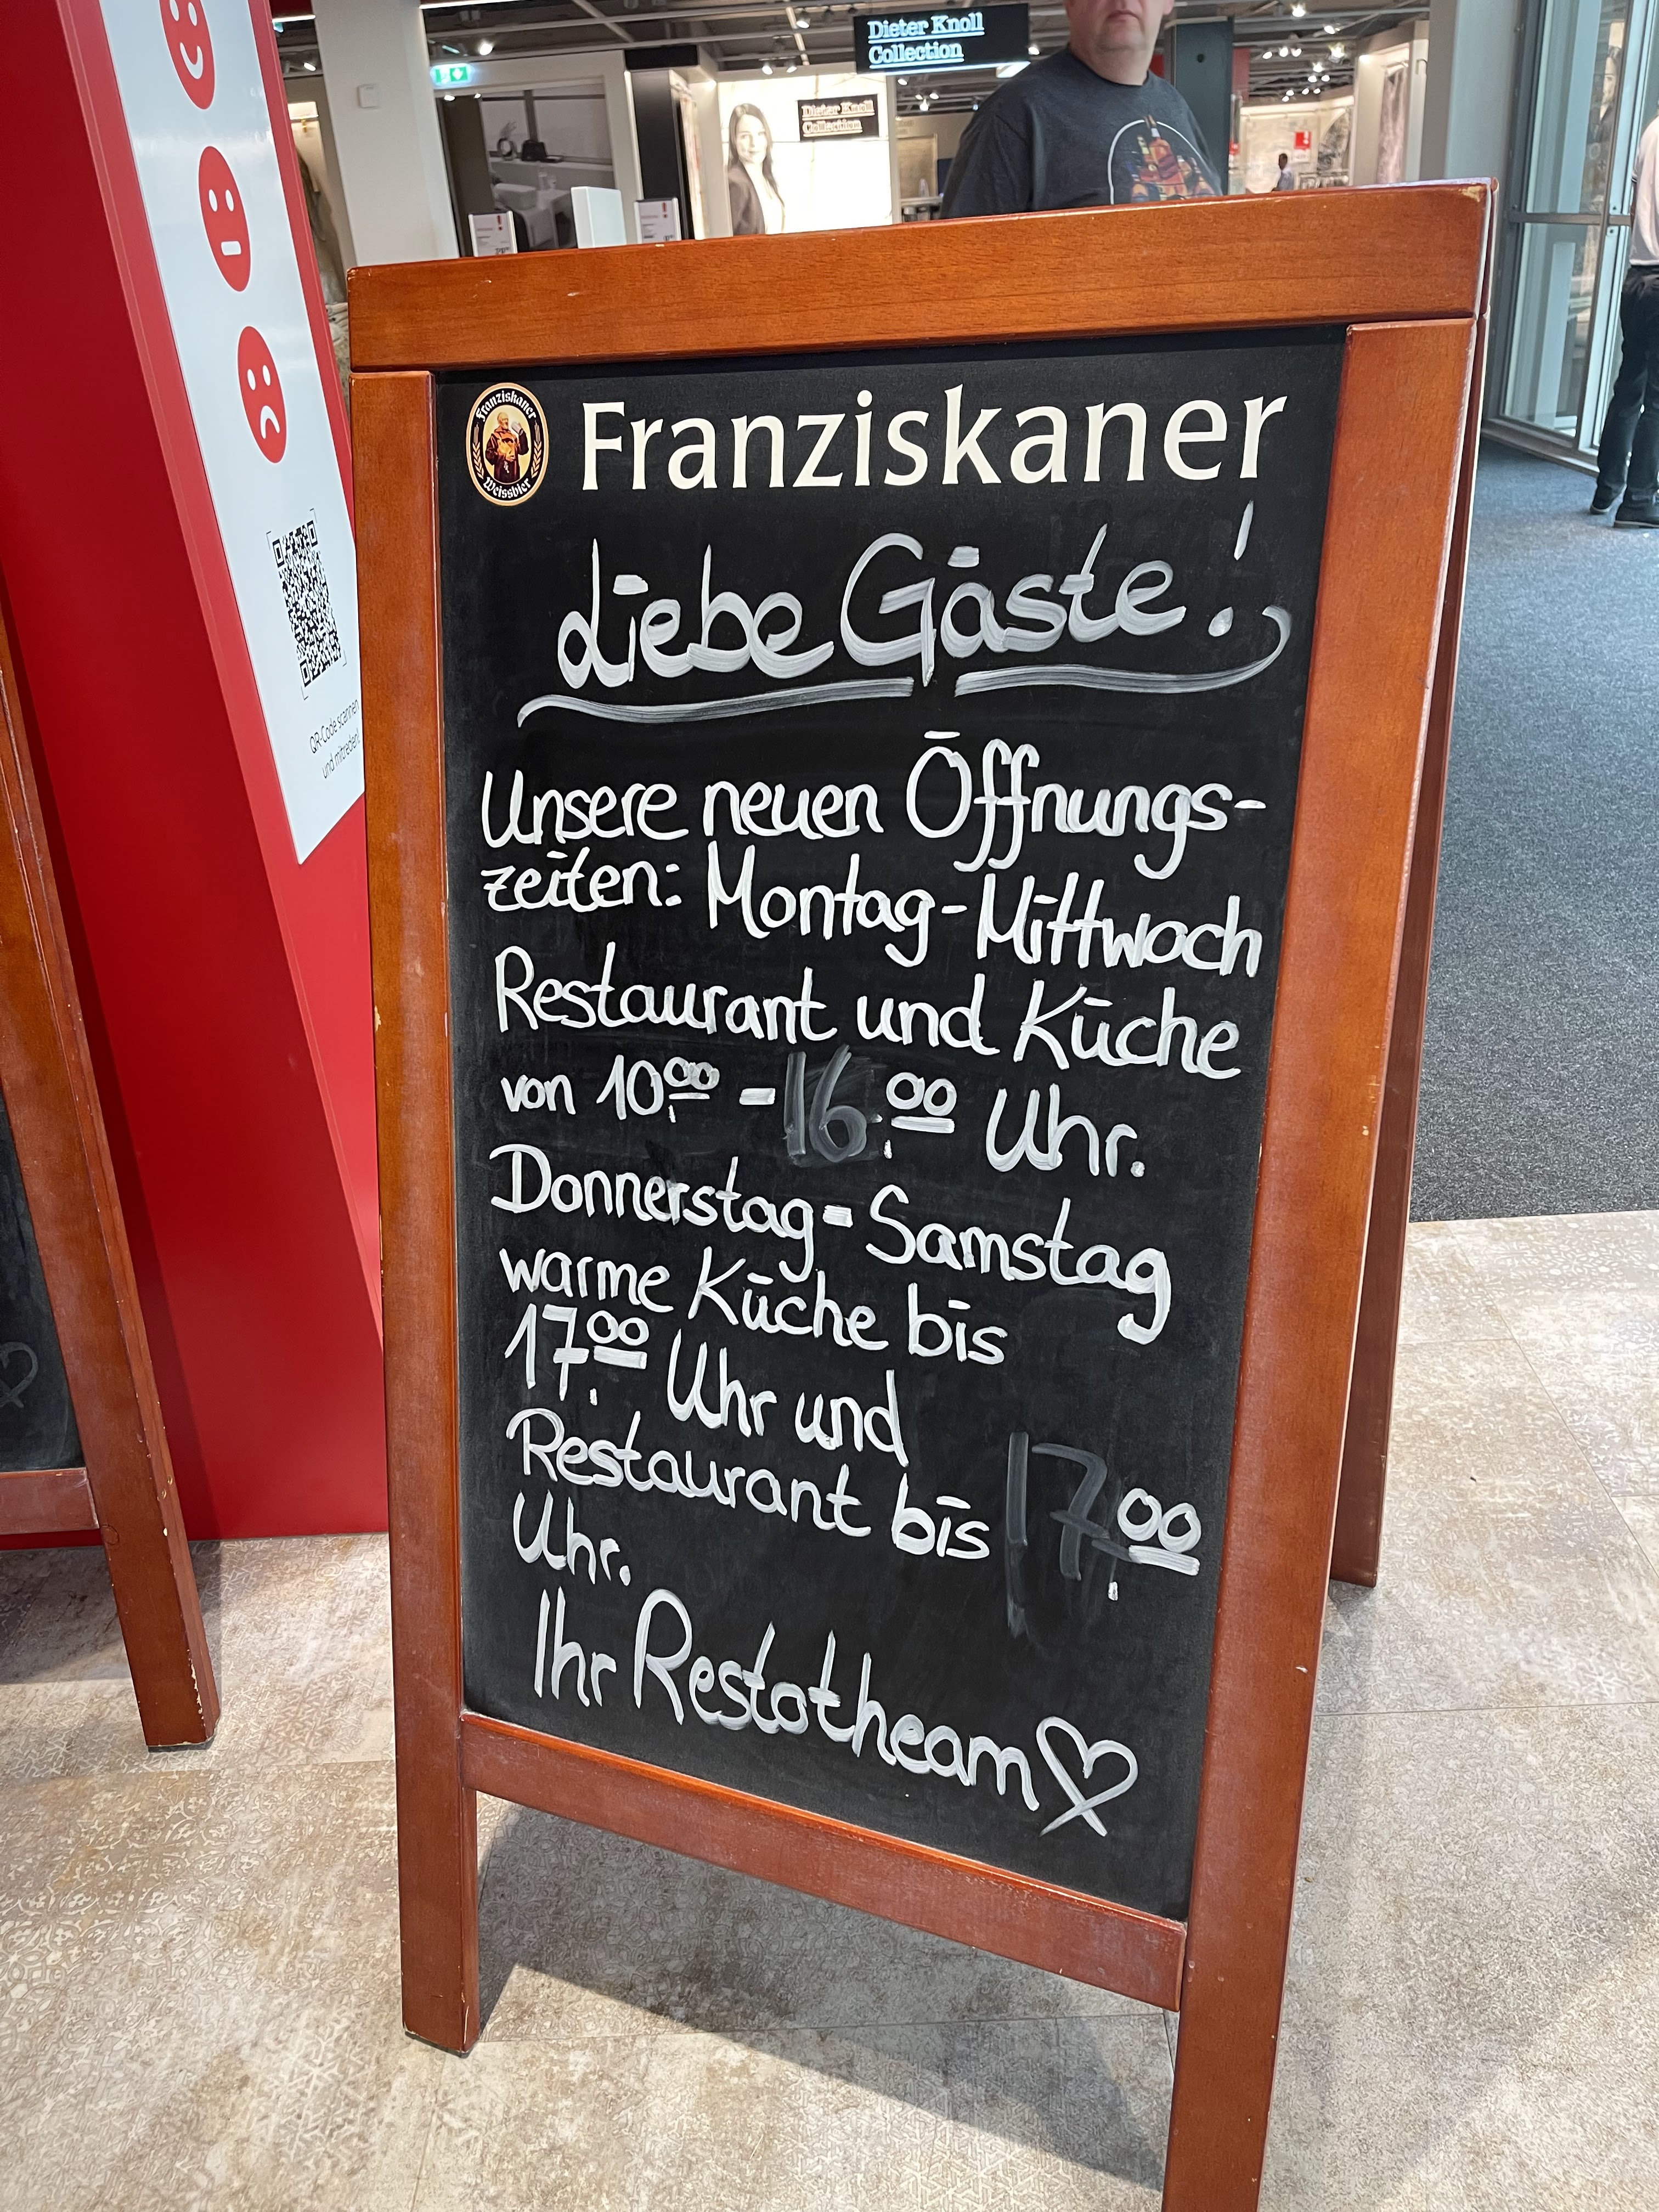 Dieter Knoll
Collection
Dieter Knoll
Collection
QR-Code scannen
und mitreden!
Franziskaner
Weissbier
Franziskaner
Liebe Gäste!
Unsere neuen Öffnungs-
zeiten: Montag-Mittwoch
Restaurant und Küche
von 10.00 - 16.00 Uhr.
Donnerstag-Samstag
warme Küche bis
17.00 Uhr und
Restaurant bis 17.00
Uhr.
Ihr Restotheam